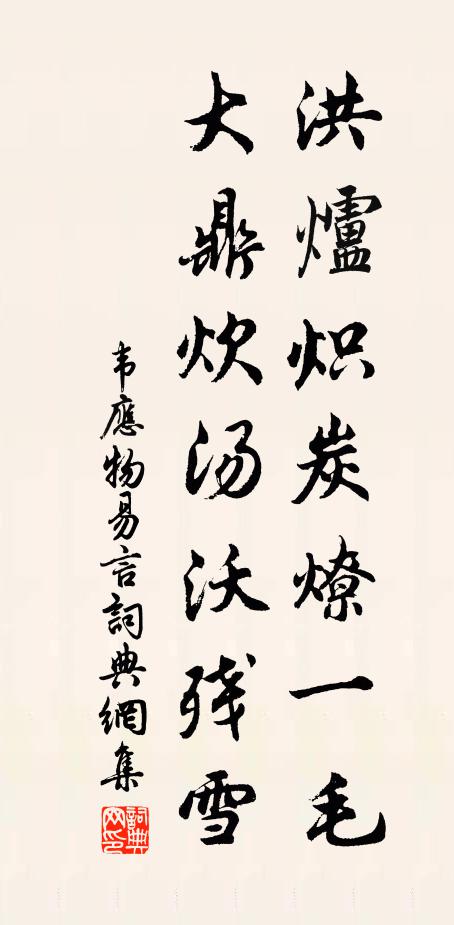 洪爐炽炭燎一毛
大鼎炊汤沃残雪
韦應物易言詞典網集
詞典网印